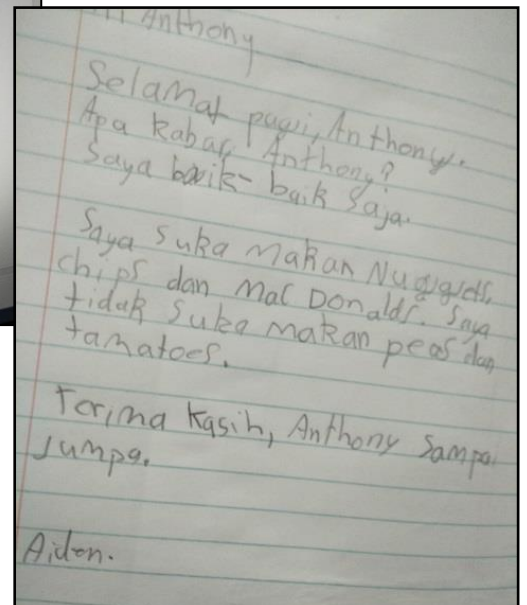 Anthony
Selamat pagi, Anthony.
Apa kabar, Anthony?
Saya baik-baik saja.
Saya suka makan Nuggets,
chips dan Mac Donalds. Saya
tidak suka makan peas dan
tamatoes.
Terima kasih, Anthony Sampai
Jumpa.
Aiden.